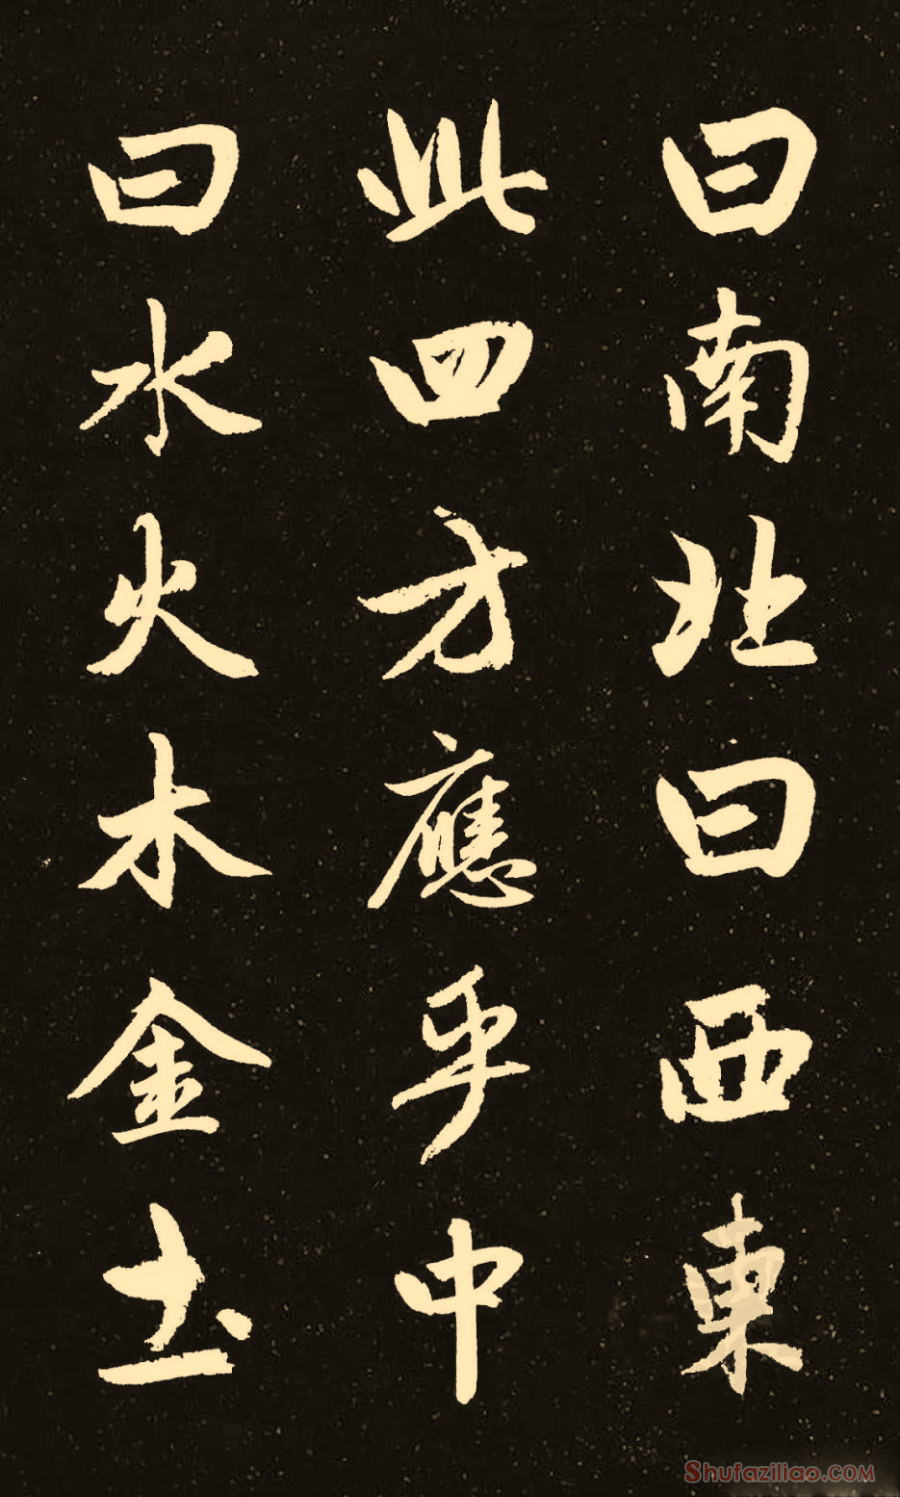 曰南北曰西東
此四方應乎中
曰水火木金土
Shufaziliao.com